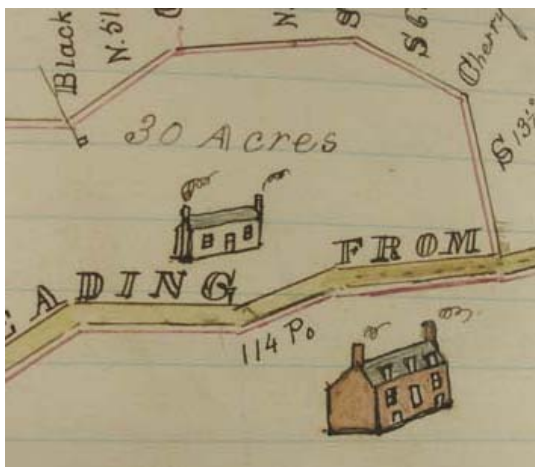 Black
N. 51
N.
S
S 6
Cherry
S 13½°
30 Acres
EADING FROM
114 Po